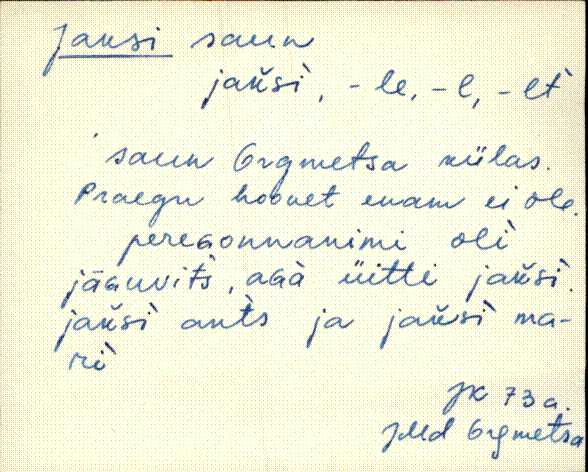 Jaksi saun
jak̆sì, -le, -l, -lt
saun Orgmetsa külas.
Praegu hoonet enam ei ole.
pereɢonnanimi olì
jāɢuvitš, aɢà üitti jak̆sì.
jak̆sì antš ja jak̆sì ma-
rì
JK 73 a.
JMd Orgmetsa